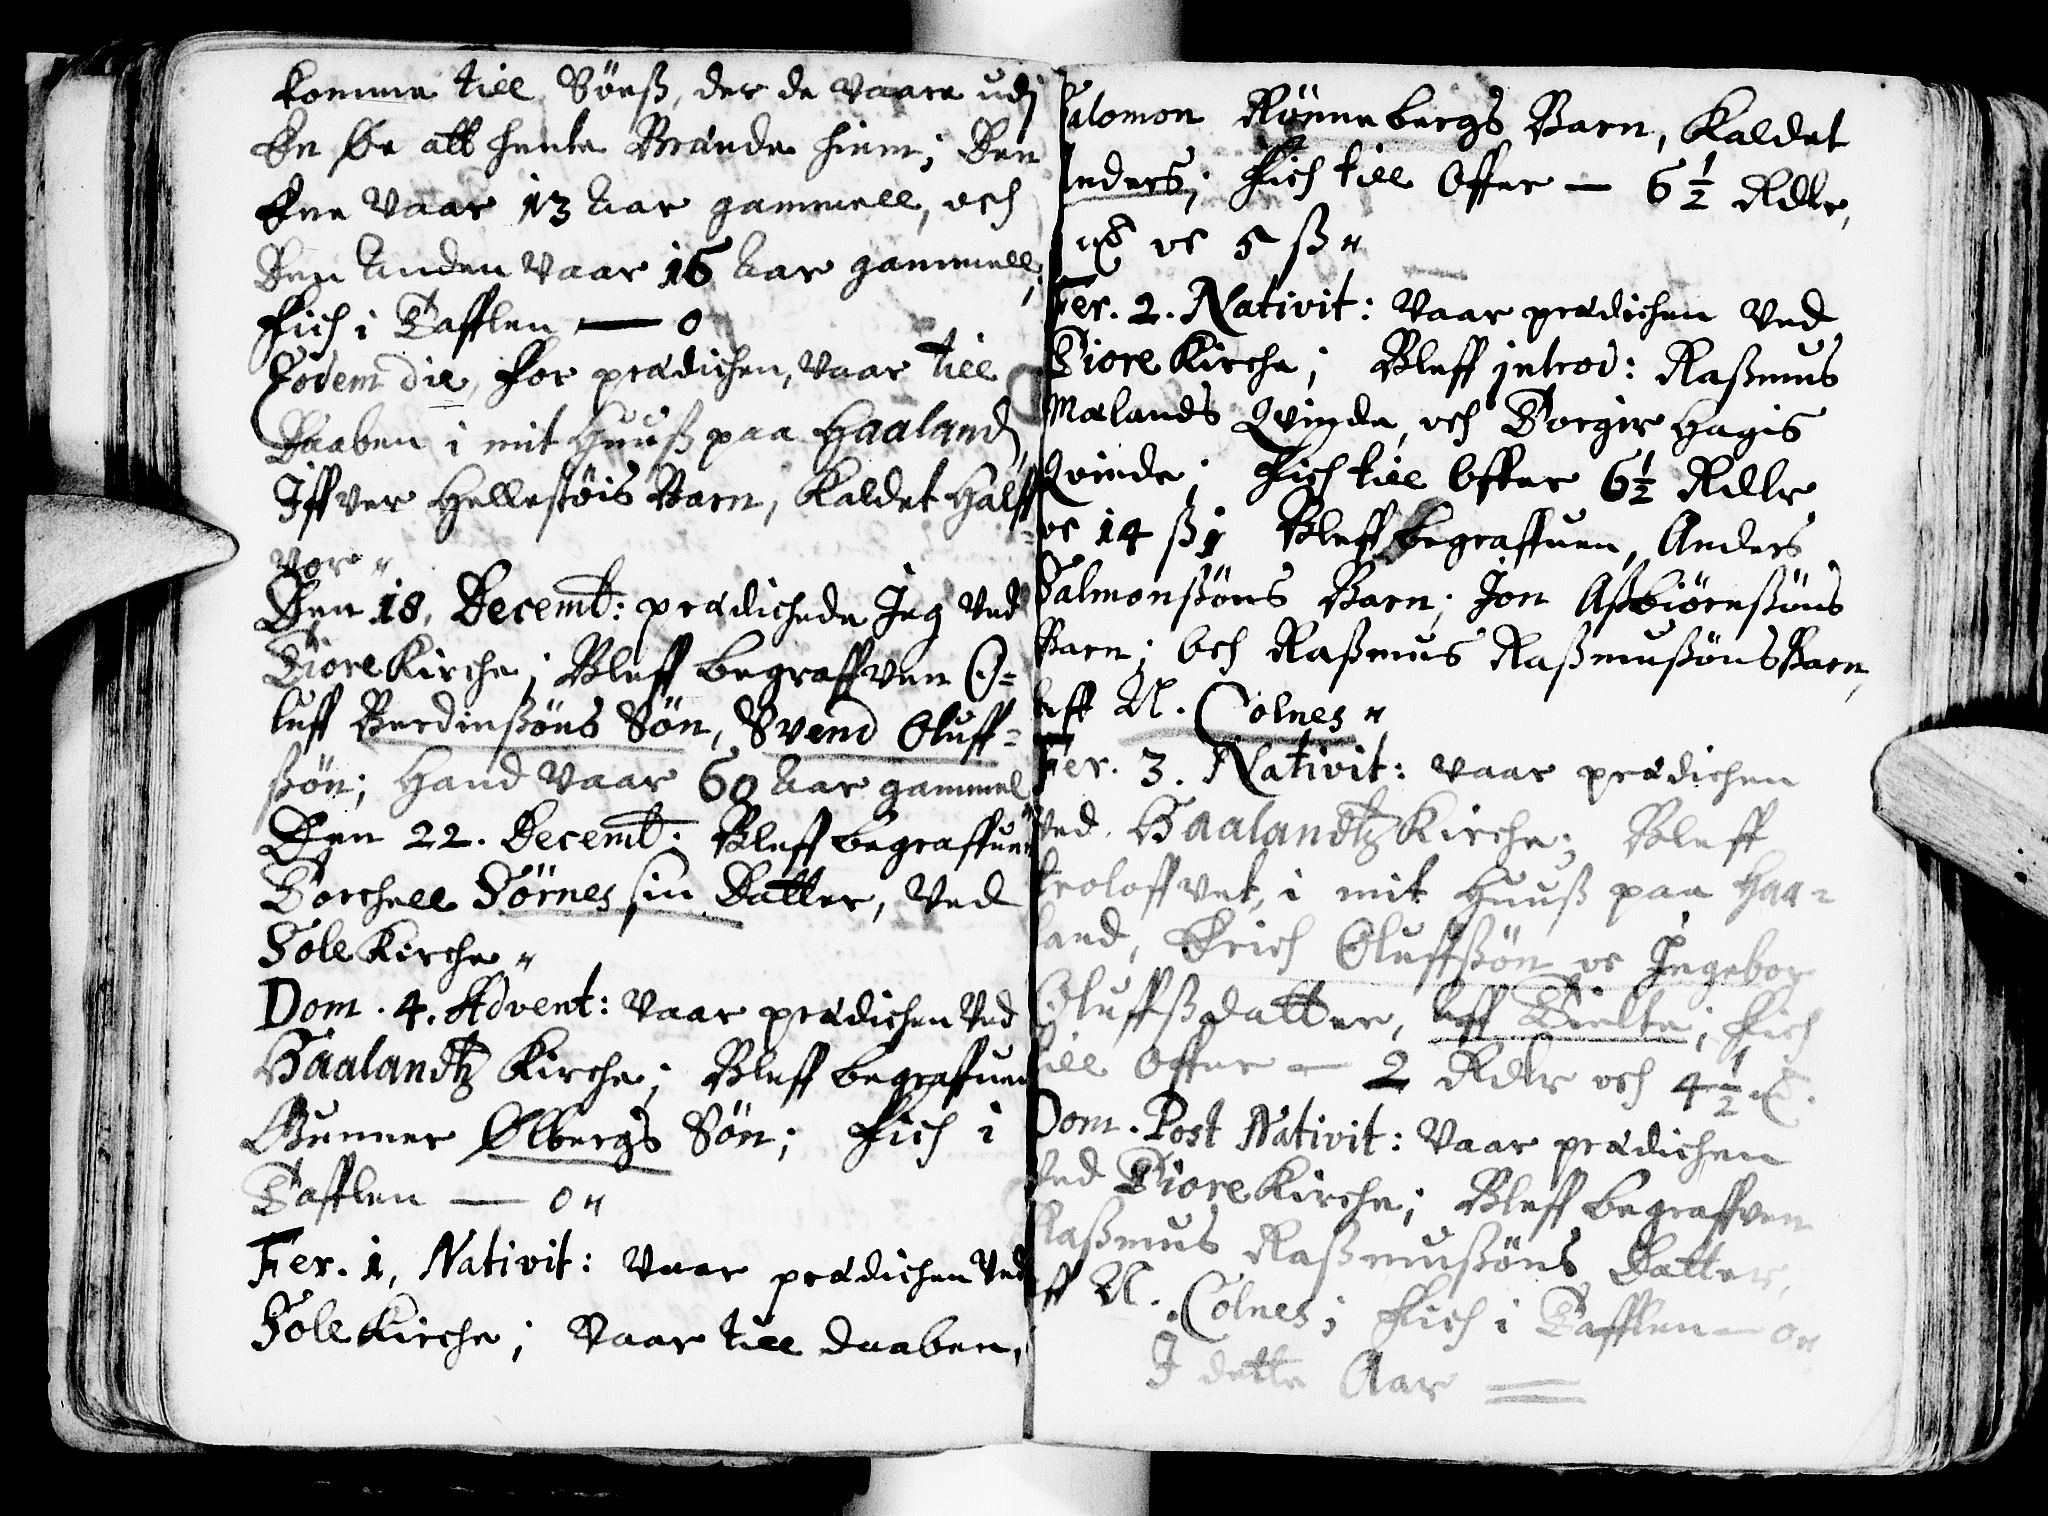 komme till Söeß, der de vaare udj
En Øe att hente Brænde hiem; Den
Ene Vaar 13 Aar gammell, och
Den Anden Vaar 16 Aar gammell;
Fich i Tafflen — 0
Eodem die, for prædichen, Vaar till
Daaben i mit Huuß paa Haaland,
Iffver Hellestöis Barn, Kaldet Halff=
vor"
Den 18. Decemb: prædichede Jeg Ved
Tiore Kirche; Bleff begraffven O=
luff Berdinßöns Sön, Svend Oluff=
ßön; Hand Vaar 60 Aar gammel
Den 22. Decemb: Bleff begraffuen
Torchell Sörnes sin Datter, Ved
Sole Kirche"
Dom. 4. Advent: Vaar prædichen Ved
Haalandtz Kirche; Bleff begraffuen
Gunner Ølbergs Sön; Fich i
Tafflen — 0"
Fer. 1, Nativit: Vaar prædichen Ved
Sole Kirche; Vaar till Daaben,
Salomon Rønnebergs Barn, Kaldet
Anders; Fich till Offer — 6 1/2 Rdlr,
oc 5 ß"
Fer. 2. Nativit: Vaar prædichen Ved
Tiore Kirche; Bleff introd: Raßmus
Mælands Qvinde, och Torgir Hagis
Qvinde; Fich till Offer 6 1/2 Rdlr
oc 14 ß; Bleff begraffuen, Anders
Salmonßöns Barn; Jon Aßbiörnßöns
Barn; Och Raßmus Raßmußöns Barn,
Aff U. Colnes"
Fer. 3. Nativit: Vaar prædichen
Ved Haalandtz Kirche; Bleff
troloffvet, i mit Huuß paa Haa=
land, Erich Oluffßön oc Ingebor
Oluffßdatter, Aff Tielte; Fich
till Offer — 2 Rdlr och 4 1/2
Dom. Post Nativit: Vaar prædichen
Ved Tiore Kirche; Bleff begraffven
Raßmus Raßmußöns Datter,
Aff U. Colnes; Fich i Tafflen — 0"
I dette Aar —